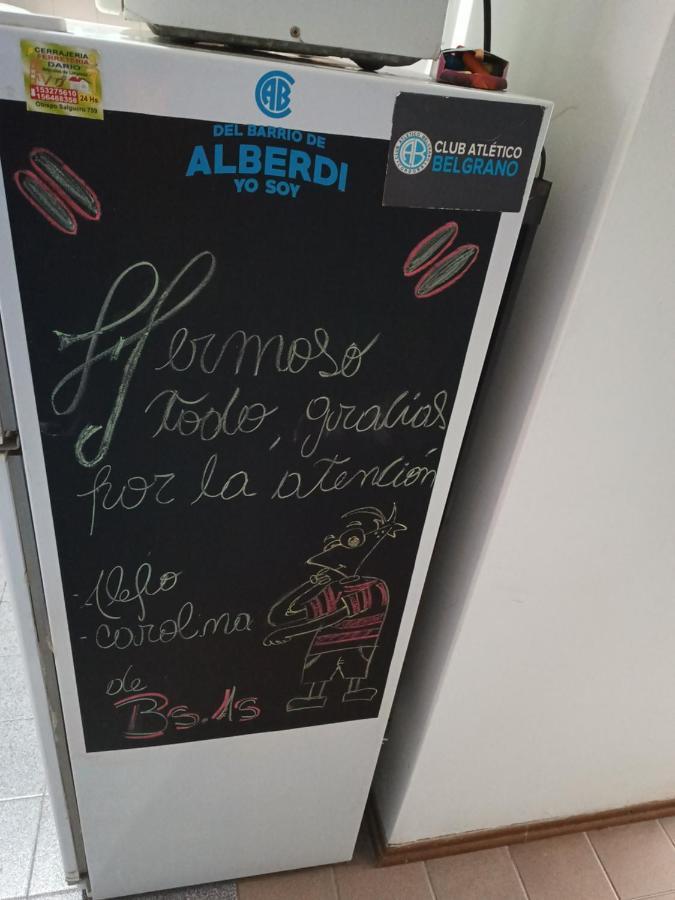 CERRAJERIA
FERRETERIA
DARIO
153275610
156468358
24 Hs
Obispo Salguero 759
CAB
DEL BARRIO DE
ALBERDI
YO SOY
CLUB ATLÉTICO
BELGRANO
Hermoso
todo, gracias
por la atención
- Alejo
- carolina
de
Bs. As